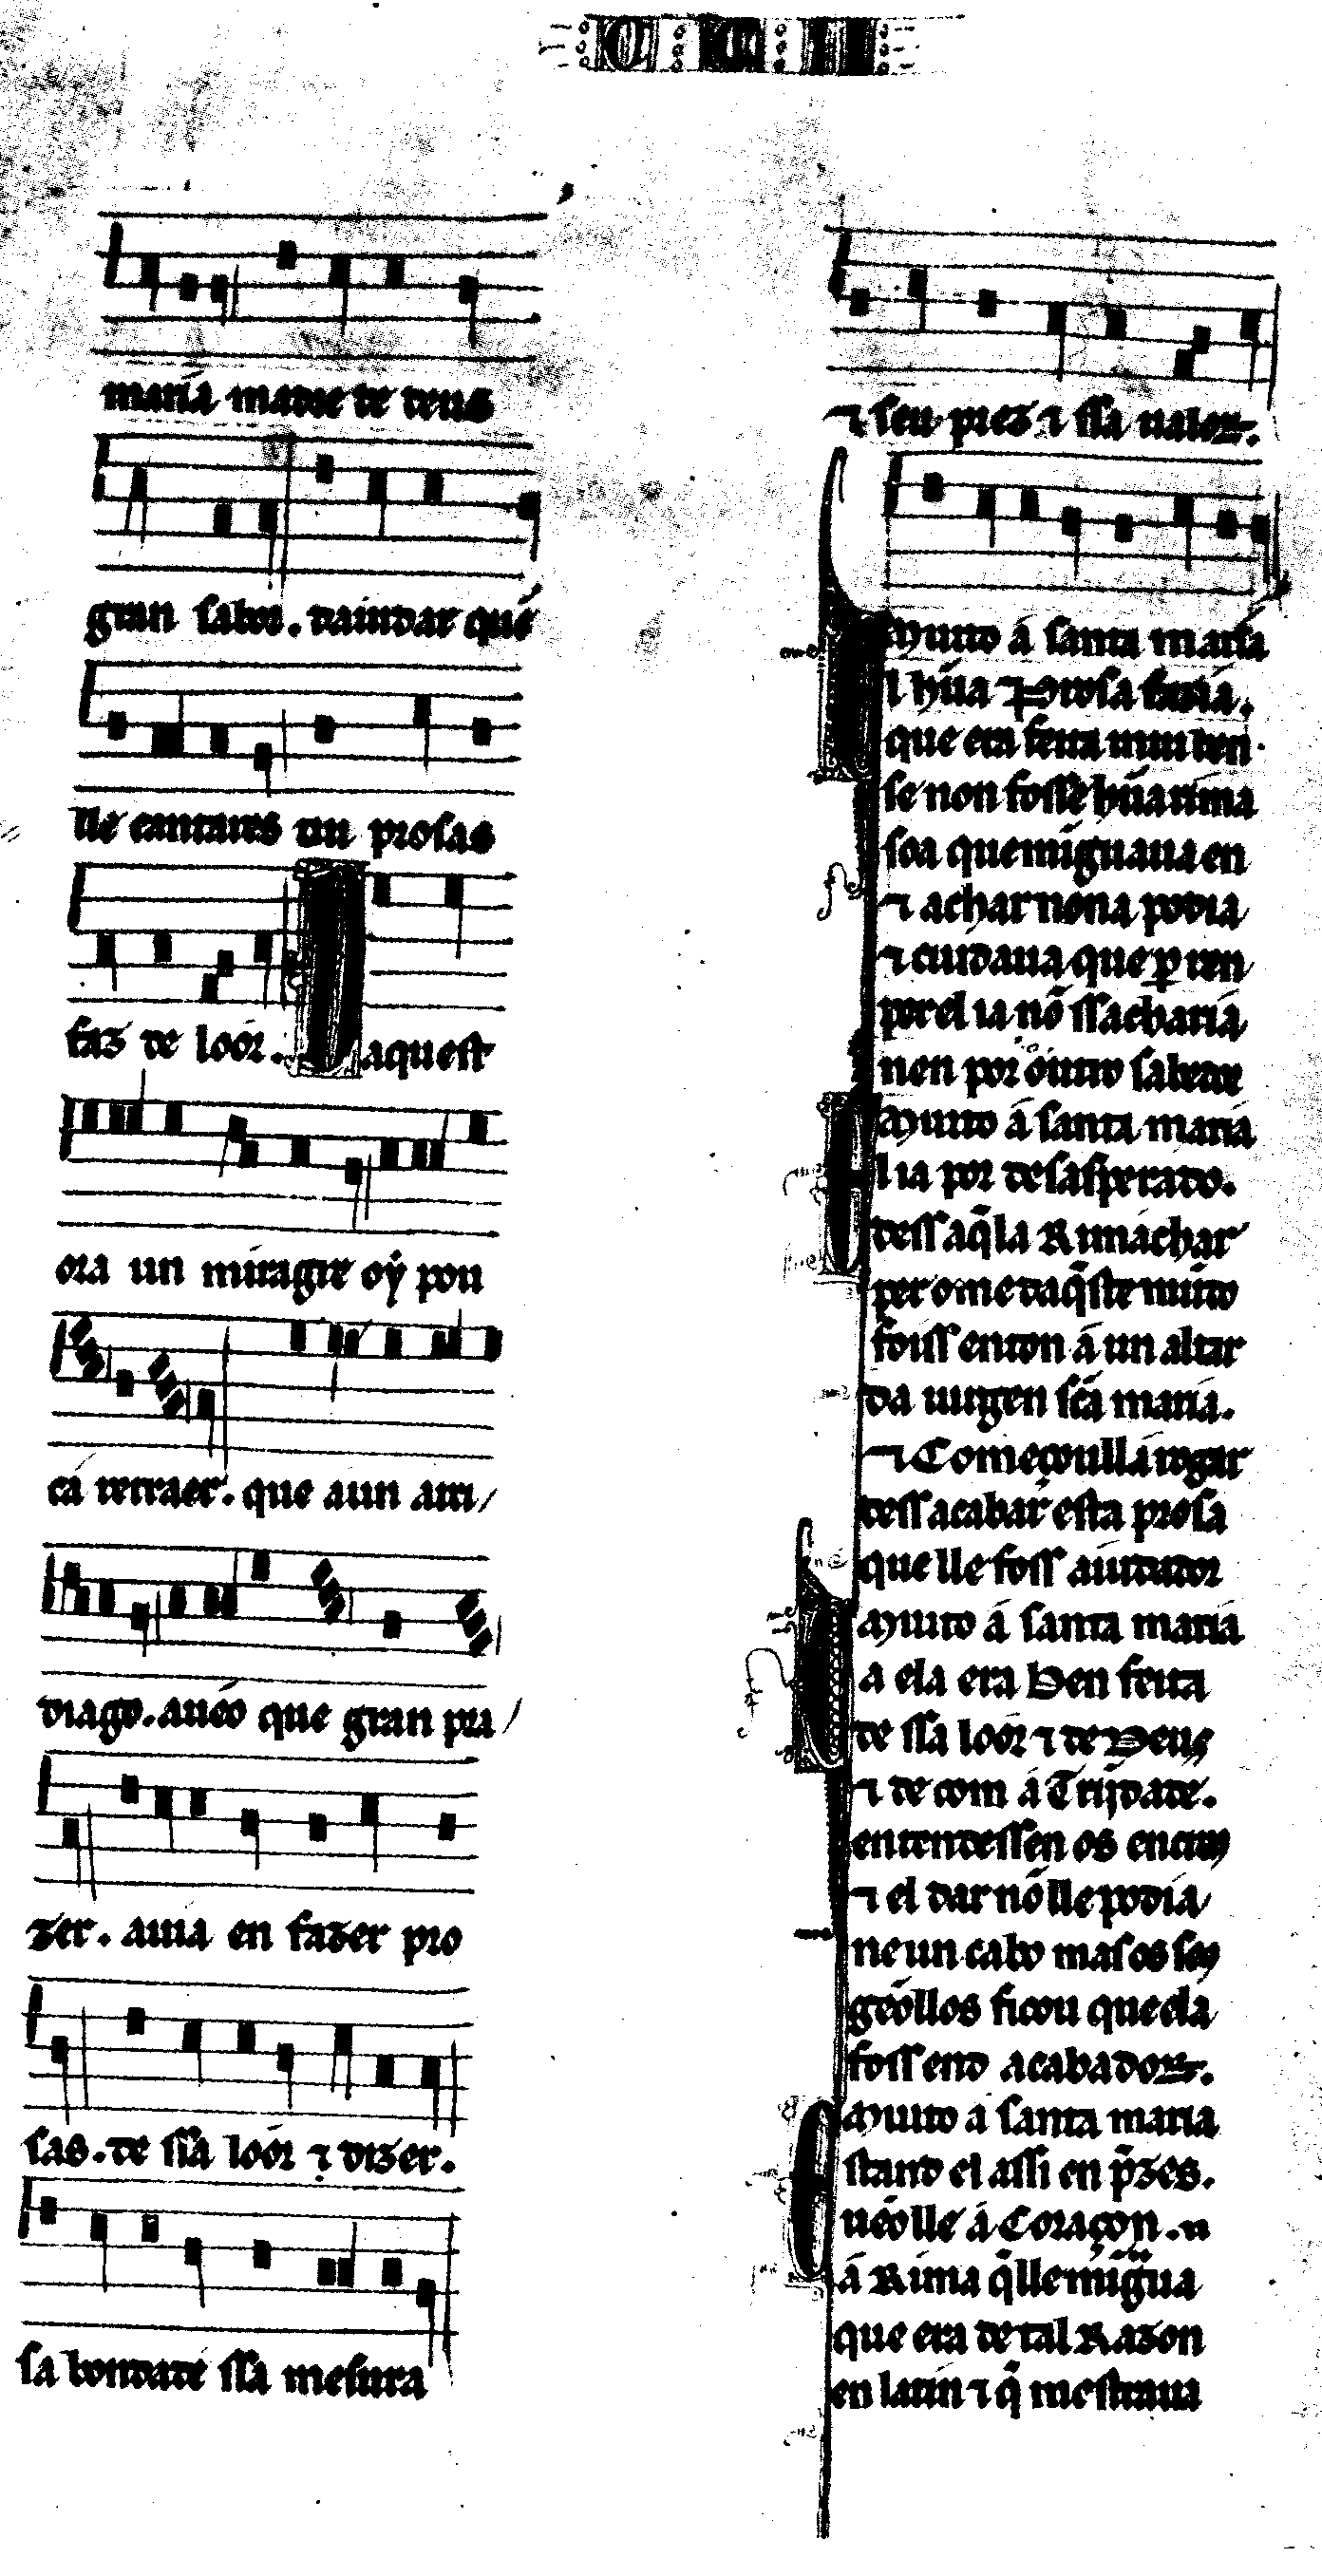 maria madre de deus
gran sabor. daiudar que
lle cantares ou prosas
faz de loor. Daquest
ora un miragre oý pou
ca retraer. que a un arci
diago. auẽo que gran pra
zer. auia en fazer pro
sas. de ssa loor ⁊ dizer.
sa bondade ssa mesura
⁊ seu prez ⁊ ssa ualor.
Muito á santa maria
l hũa Prosa fazia.
que era feita mui ben
se non fosse hũa rima
soa que mĩguaua en
⁊ achar nona podia
⁊ cuidaua que per ren
per el ia nõ ss acharia
nen por outro sabedor
Muito á santa maria
l ia por desasperado.
dess aq̃la Rim achar
per ome daq̃ste mũdo
foiss enton á un altar
da uirgen scã maria.
⁊ Começoull á rogar
dess acabar esta prosa
que lle foss aiudador
Muito á santa maria
a ela era Ben feita
de ssa loor ⁊ de Deus
⁊ de com á Trĩidade.
entendessen os encreus
⁊ el dar nõ lle podia
neun cabo mas os seus
gẽollos ficou que ela
foss end acabador.
Muito a santa maria
stand el assi en p̃zes.
uẽolle á Coraçon.
á Rima q̃ lle mĩgua
que era de tal Razon
en latin ⁊ q̃ mostraua